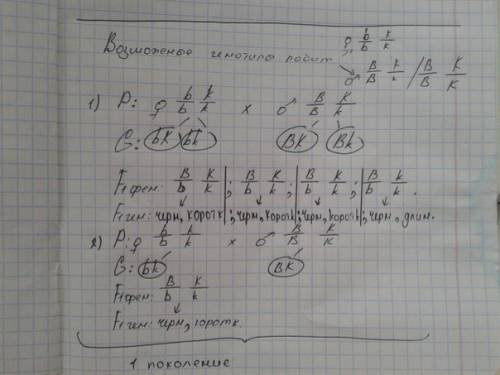 Возможные генотипы
♀ b/b k/k
♂ B/B K/k / B/B K/K
1) P: ♀ b/b K/k x ♂ B/B K/k
G: bK bk BK Bk
F₁ фен: B/b K/K; B/b K/k; B/b K/k; B/b k/k.
F₁ ген: черн, коротк; черн, коротк; черн, коротк; черн, длин.
2) P: ♀ b/b k/k x ♂ B/B K/K
G: bk BK
F₁ фен: B/b K/k
F₁ ген: черн, коротк.
1 поколение